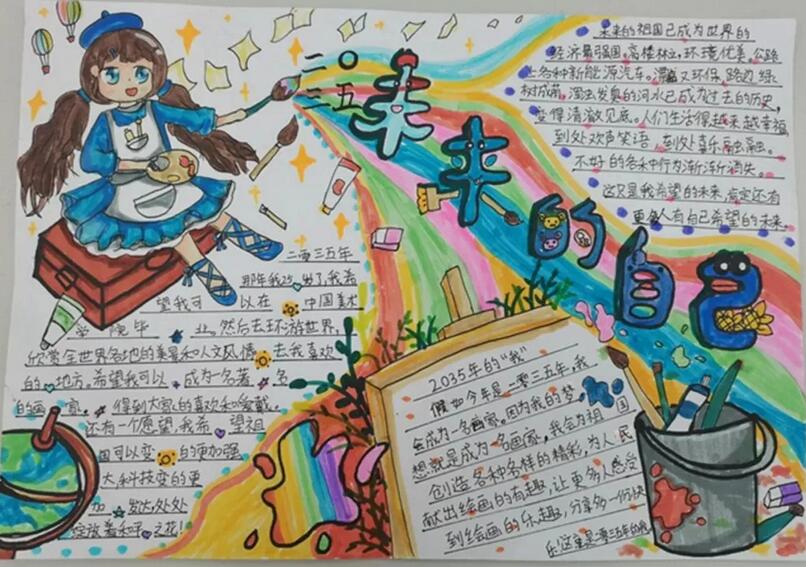 二〇三五
未来的自己
未来的祖国已成为世界的
经济最强国。高楼林立，环境优美。公路
上各种新能源汽车。漂亮又环保，路边绿
树成荫。浑浊发臭的河水已成为过去的历史，
变得清澈见底。人们生活得越来越幸福
到处欢声笑语，到处喜乐融融。
不好的各种行为渐渐消失。
这只是我希望的未来，肯定还有
更多人有自己希望的未来。
二零三五年
那年我 岁了，我希
望我可以在中国美术
学院毕业。然后去环游世界，
欣赏全世界各地的美景和人文风情。去我喜欢
的地方。希望我可以成为一名著名
的画家。得到大家的喜欢和爱戴。
还有一个愿望，我希望祖
国可以变的更加强
大，科技变的更
加发达，处处
绽放着和平之花！
2035年的“我”
假如今年是二零三五年，我
会成为一名画家。因为我的梦
想就是成为一名画家，我会为祖国
创造各种各样的精彩，为人民
献出绘画的有趣，让更多人感受
到绘画的乐趣，分享多一份快
乐。这里是二零三五年的我